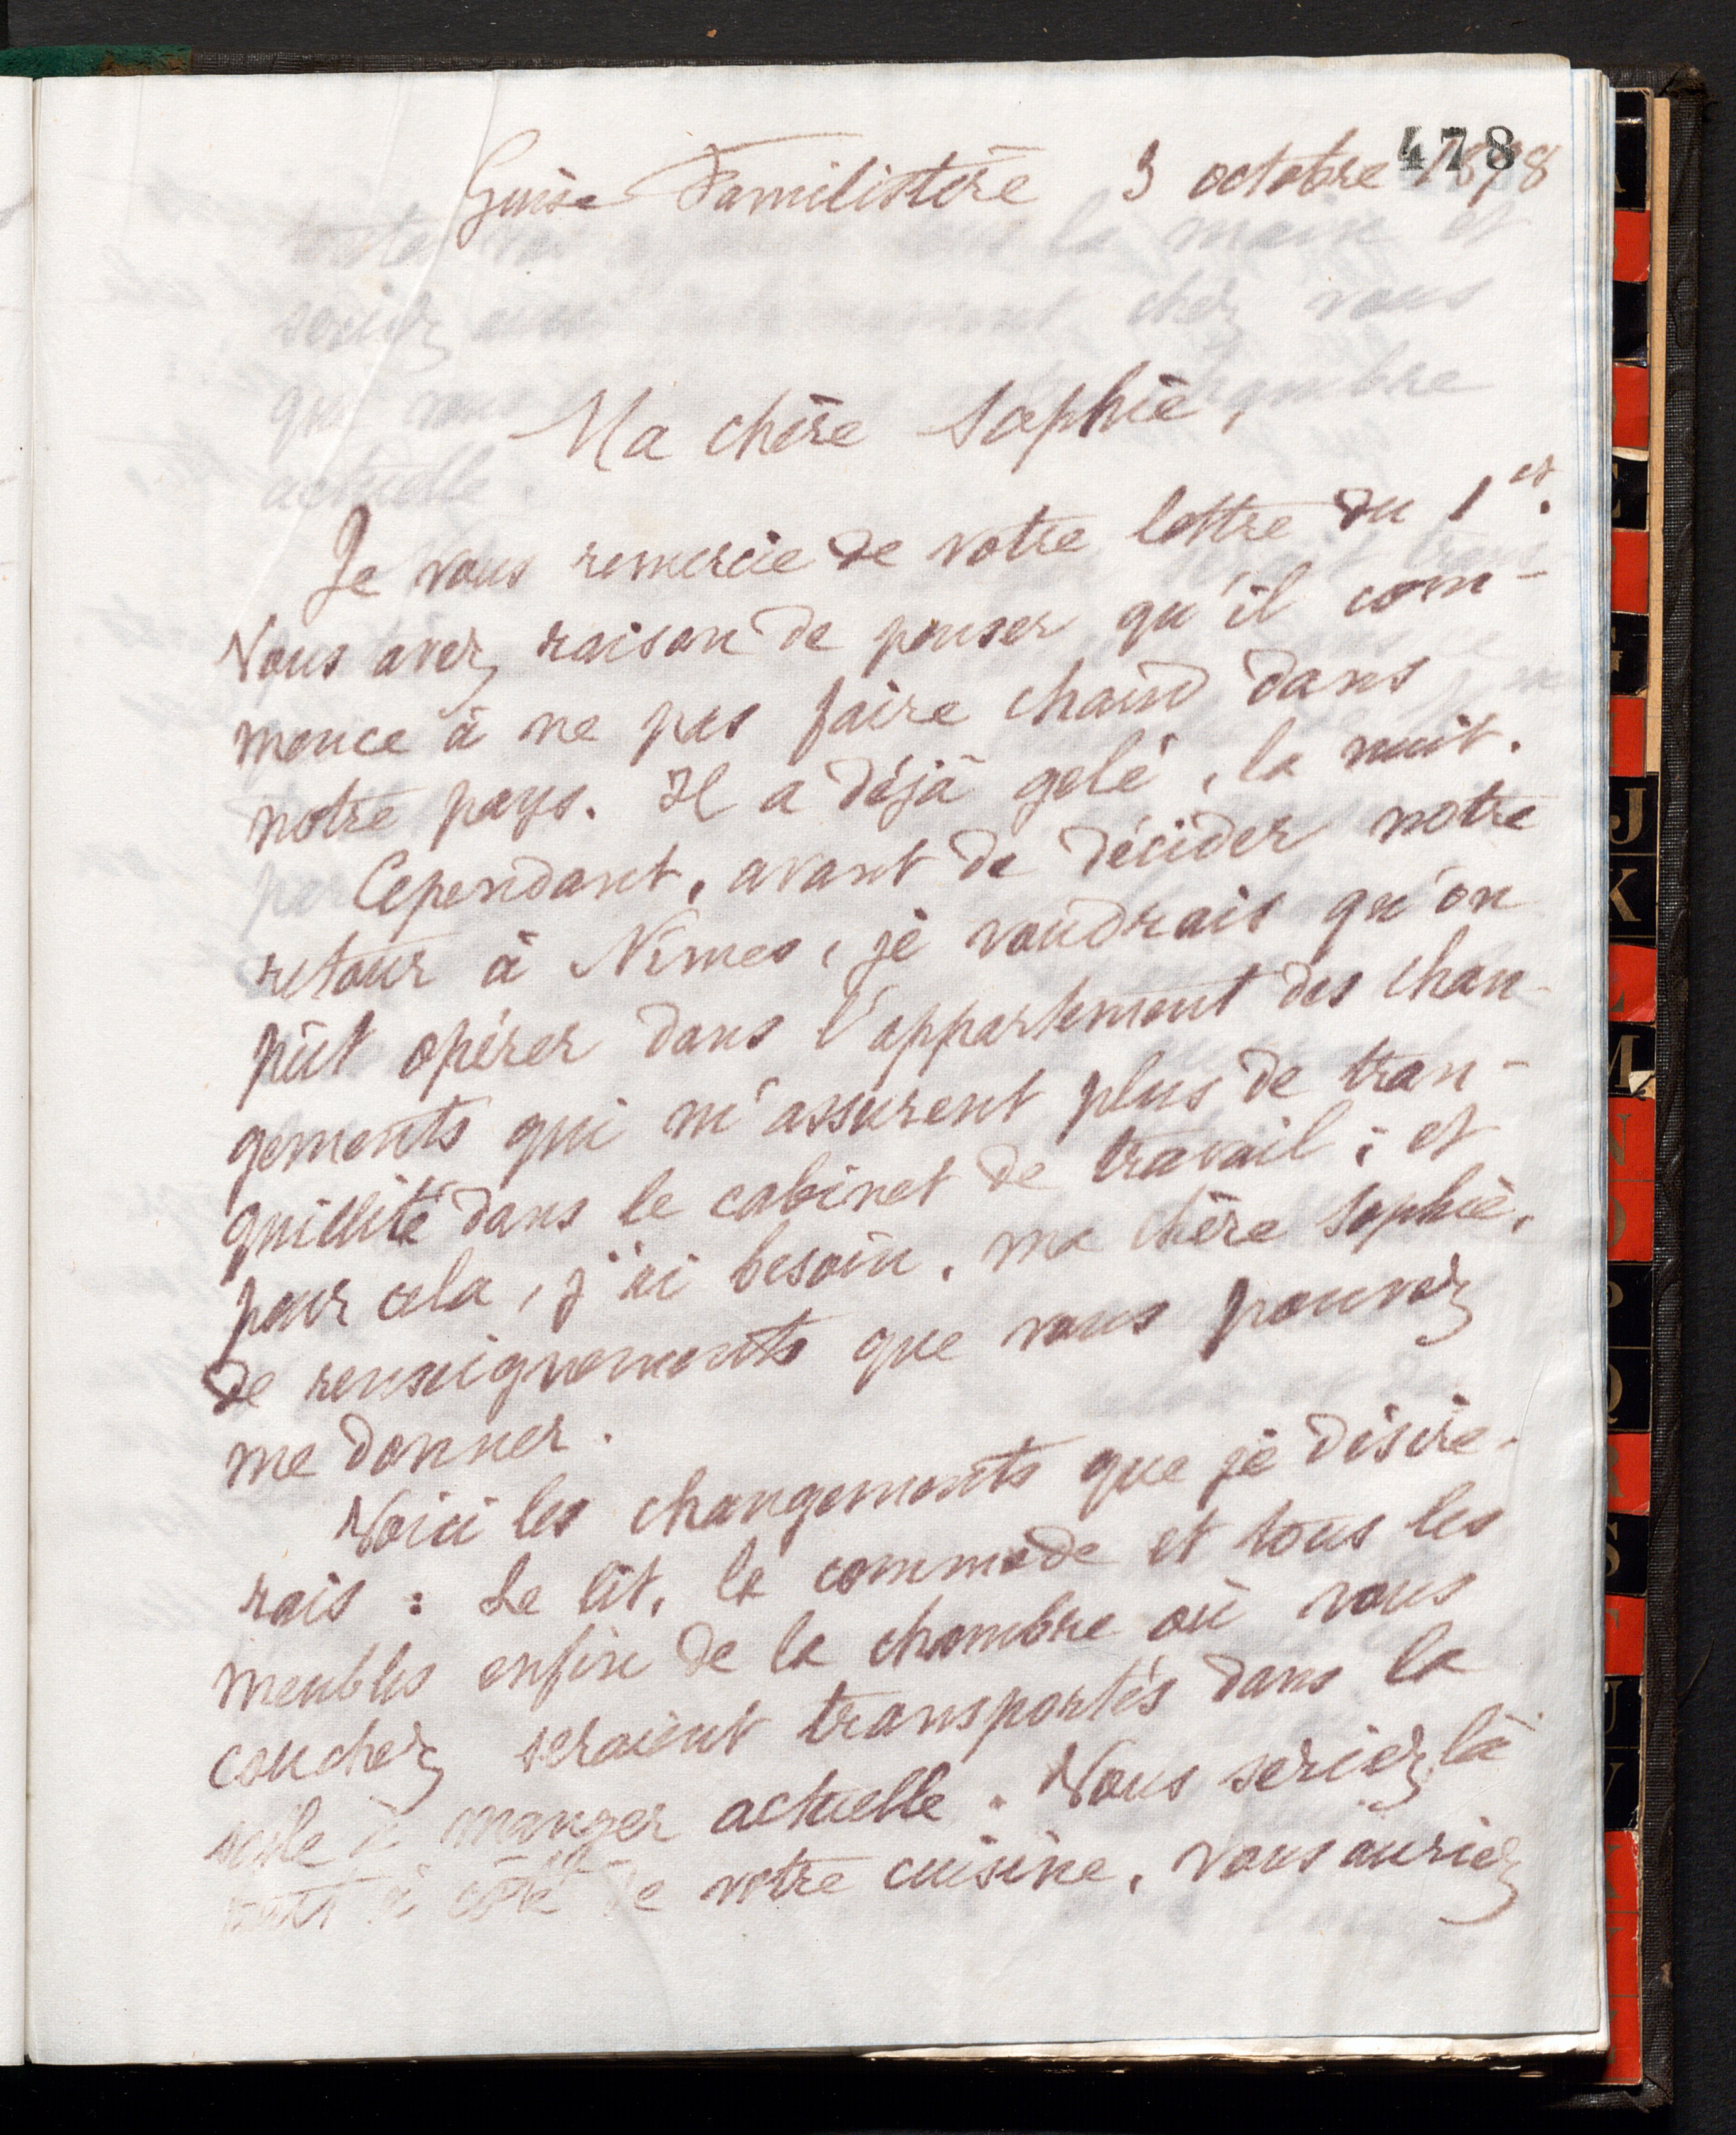 478
Guise Familistère 3 octobre 1898
Ma chère Sophie,
Je vous remercie de votre lettre du 1er.
Vous avez raison de penser qu'il com-
mence à ne pas faire chaud dans
notre pays. Il a déjà gelé, la nuit.
Cependant, avant de décider notre
retour à Nîmes, je voudrais qu'on
pût opérer dans l'appartement des chan-
gements qui m'assurent plus de tran-
quillité dans le cabinet de travail ; et
pour cela, j'ai besoin, ma chère Sophie,
de renseignements que vous pouvez
me donner.
Voici les changements que je désire-
rais : Le lit, la commode et tous les
meubles enfin de la chambre où vous
couchez seraient transportés dans la
salle à manger actuelle. Vous seriez là
tout à côté de votre cuisine, vous auriez